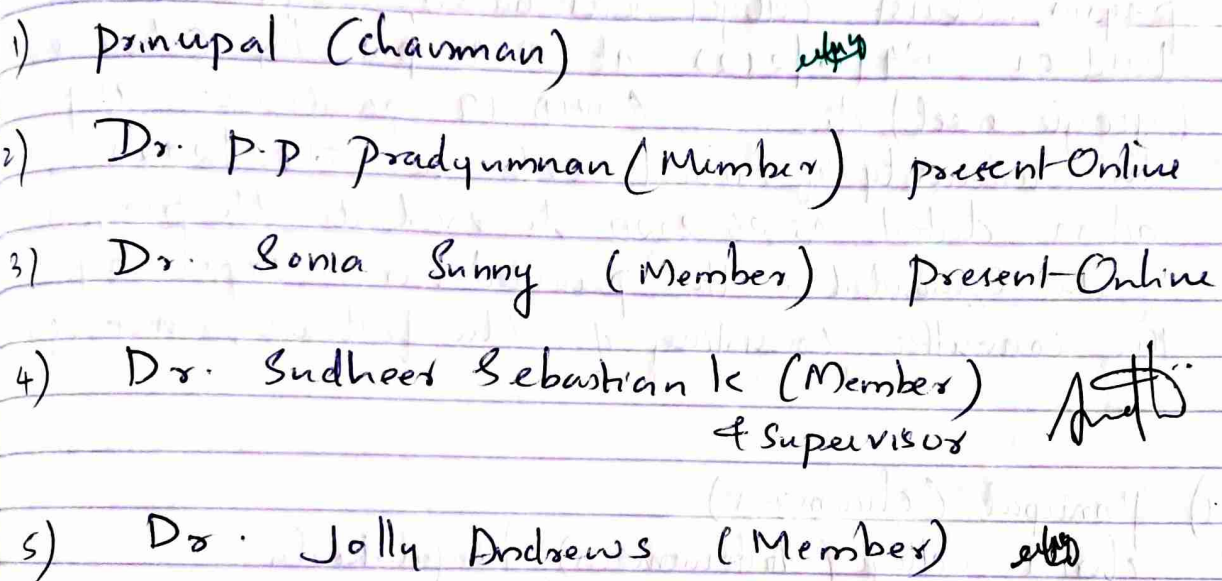 1) Principal (Chairman)
2) Dr. P.P. Pradyumnan (Member) present Online
3) Dr. Sonia Sunny (Member) Present-Online
4) Dr. Sudheer Sebastian K (Member)
& Supervisor
5) Dr. Jolly Andrews (Member)